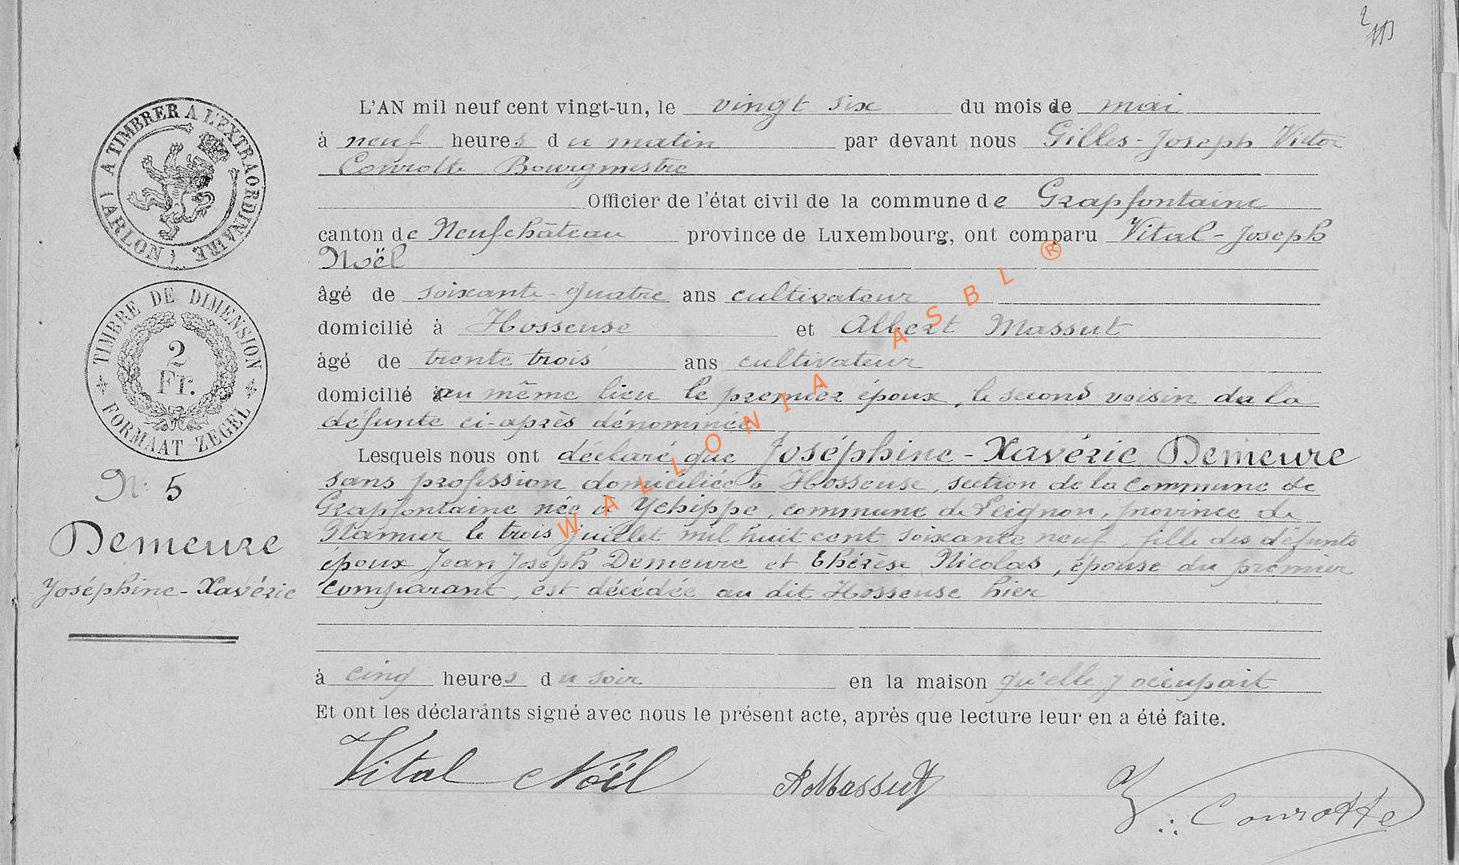 L'AN mil neuf cent vingt-un, le vingt six du mois de mai
à neuf heures du matin par devant nous Gilles-Joseph Victor
Conrotte Bourgmestre
Officier de l'état civil de la commune de Grapfontaine
canton de Neufchâteau province de Luxembourg, ont comparu Vital-Joseph
Noël
âgé de soixante-quatre ans cultivateur
domicilié à Hosseuse et Albert Massut
âgé de trente trois ans cultivateur
domicilié au même lieu le premier époux, le second voisin de la
défunte ci-après dénommée
Lesquels nous ont declaré que Joséphine-Xavérie Demeure
sans profession domiciliée à Hosseuse, section de la commune de
Grapfontaine née à Ychippe, commune de Leignon, province de
Namur le trois juillet mil huit cent soixante neuf, fille des défunts
époux Jean Joseph Demeure et Thérèse Nicolas, épouse du premier
comparant, est décédée au dit Hosseuse hier
à cinq heures du soir en la maison qu'elle y occupait
Et ont les déclarants signé avec nous le présent acte, après que lecture leur en a été faite.
Vital Noël A Massut V. Conrotte
A TIMBRER A L'EXTRAORDINAIRE (ARLON)
TIMBRE DE DIMENSION
2
Fr.
FORMAAT ZEGEL
N° 5
Demeure
Joséphine-Xavérie
WALLONIA ASBL ®